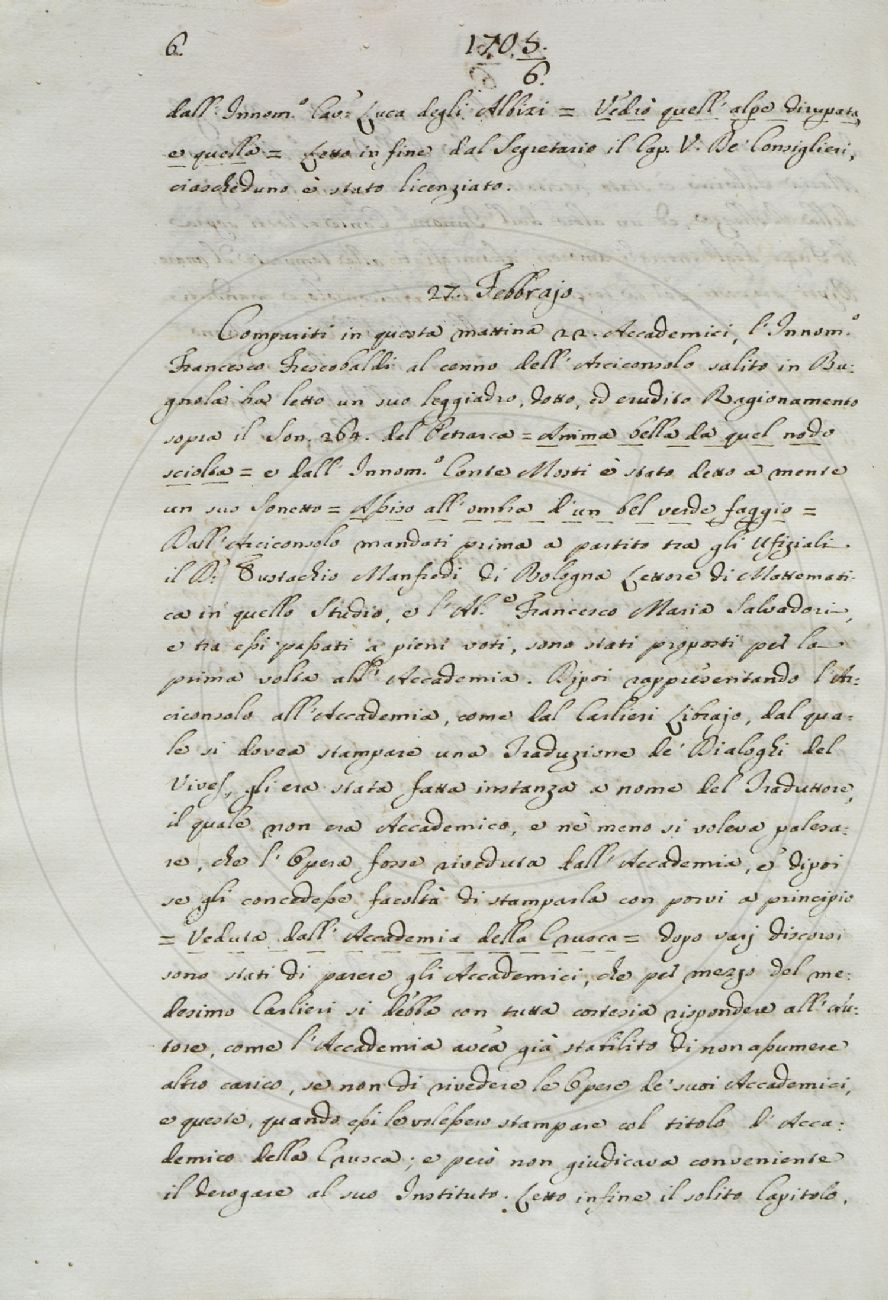 6.
1705.
6.
dall' Innom.º Cav.r Luca degli Albizi = Vedrò quell' alpe dirupata,
e quella = Letto in fine dal Segretario il Cap. V. De' Consiglieri,
ciascheduno è stato licenziato.
27. Febbrajo
Compariti in questa mattina 22. Accademici, l'Innom.º
Francesco Frescobaldi al cenno dell' Arciconsolo salito in Bu=
gnola ha letto un suo leggiadro, dotto, ed erudito Ragionamento
sopra il Son. 264. del Petrarca = Anima bella da quel nodo
sciolta = e dall' Innom.º Conte Mosti è stato detto a mente
un suo Sonetto = Assiso all' ombra d'un bel verde faggio =
Dall' Arciconsolo mandati prima a partito tra gli Ufiziali
il D.r Eustachio Manfredi di Bologna Lettore di Mattemati=
ca in quello Studio, e l'Ab.e Francesco Maria Salvadori,
e tra essi passati a pieni voti, sono stati proposti per la
prima volta all' Accademia. Dipoi rappresentando l'Ar=
ciconsolo all' Accademia, come dal Carlieri Librajo, dal qua=
le si dovea stampare una Traduzione de' Dialoghi del
Vives, gli era stata fatta instanza a nome del Traduttore,
il quale non era Accademico, e nè meno si voleva palesa=
re, che l' Opera fosse riveduta dall' Accademia, e dipoi
se gli concedesse facoltà di stamparla con porvi a principio
= Veduta dall' Accademia della Crusca = dopo varj discorsi
sono stati di parere gli Accademici, che per mezzo del me=
desimo Carlieri si debba con tutta cortesia rispondere all' Au=
tore, come l'Accademia avea già stabilito di non assumere
altro carico, se non di rivedere le Opere de' suoi Accademici,
e queste, quando essi le volessero stampare col titolo d' Acca=
demico della Crusca; e però non giudicava conveniente
il derogare al suo Instituto. Letto in fine il solito Capitolo,